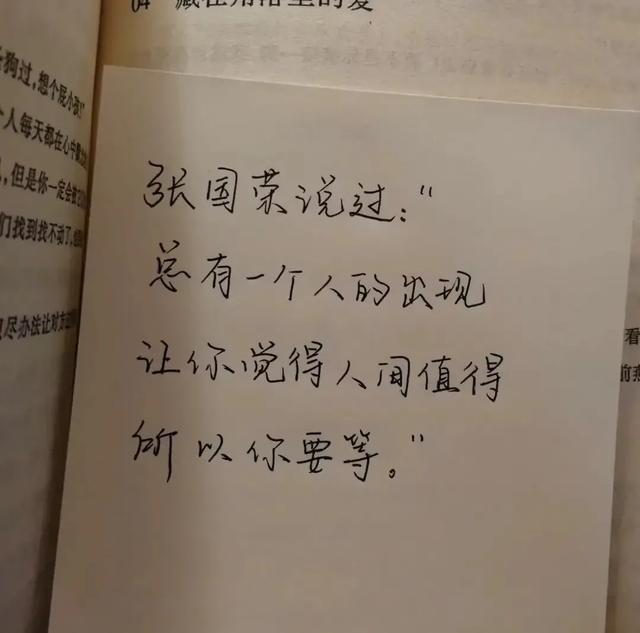 04
狗过，想个屁小孩
个人每天都在心中
，但是你一定会被
们找到找不动了，
尽办法让对方
张国荣说过："
总有一个人的出现
让你觉得人间值得
所以你要等。"
看
前